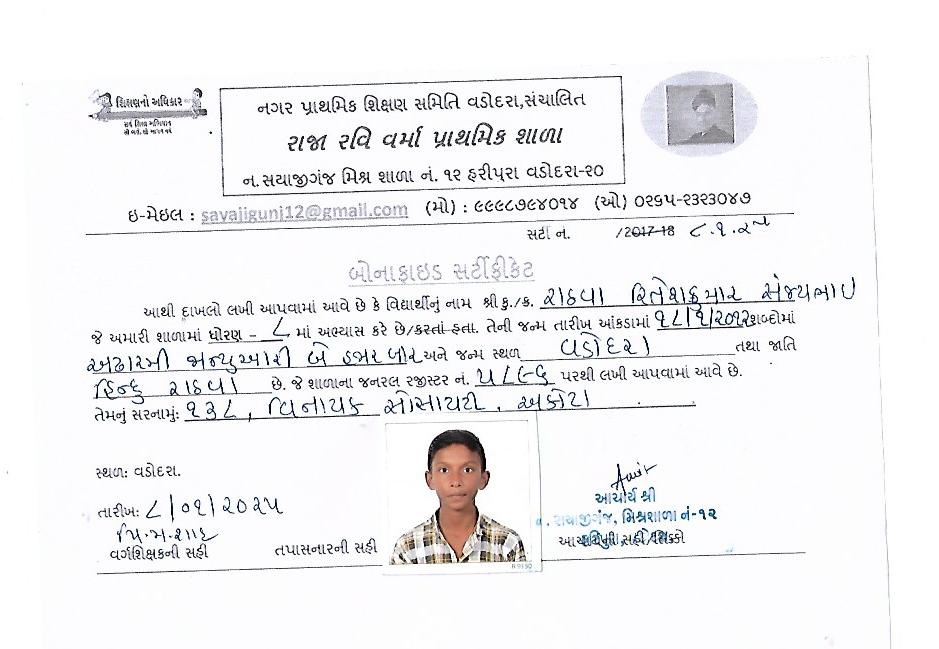 શિક્ષણનો અધિકાર
સર્વ શિક્ષા અભિયાન
સૌ ભણે, સૌ આગળ વધે
નગર પ્રાથમિક શિક્ષણ સમિતિ વડોદરા,સંચાલિત
રાજા રવિ વર્મા પ્રાથમિક શાળા
ન.સયાજીગંજ મિશ્ર શાળા નં. ૧૨ ફરીપરા વડોદરા-૨૦
ઇ-મેઇલ : savajigunj12@gmail.com (મો) : ૯૯૯૮૭૯૪૦૧૪ (ઓ) ૦૨૬૫-૨૩૨૩૦૪૭
સર્ટી નં. /2017-18
બોનાફાઇડ સર્ટીફીકેટ
આથી દાખલો લખી આપવામાં આવે છે કે વિદ્યાર્થીનું નામ શ્રી કુ./ક. રાઠવા રિતેશકુમાર સંજયભાઇ
જે અમારી શાળામાં ધોરણ - ૮ માં અભ્યાસ કરે છે/કરતાં હતા. તેની જન્મ તારીખ આંકડામાં ૧૮/૧/૨૦૧૨ શબ્દોમાં
અઢારમી જાન્યુઆરી બે હજાર બાર અને જન્મ સ્થળ વડોદરા તથા જાતિ
હિન્દુ રાઠવા છે. જે શાળાના જનરલ રજીસ્ટર નં. ૫૮૯૬ પરથી લખી આપવામાં આવે છે.
તેમનું સરનામું: ૧૩૮, વિનાયક સોસાયટી. અકોટા
સ્થળ: વડોદરા.
તારીખ: ૮/૦૧/૨૦૨૫
વર્ગશિક્ષકની સહી તપાસનારની સહી
આચાર્ય શ્રી
ન. સયાજીગંજ, મિશ્રશાળા નં-૧૨